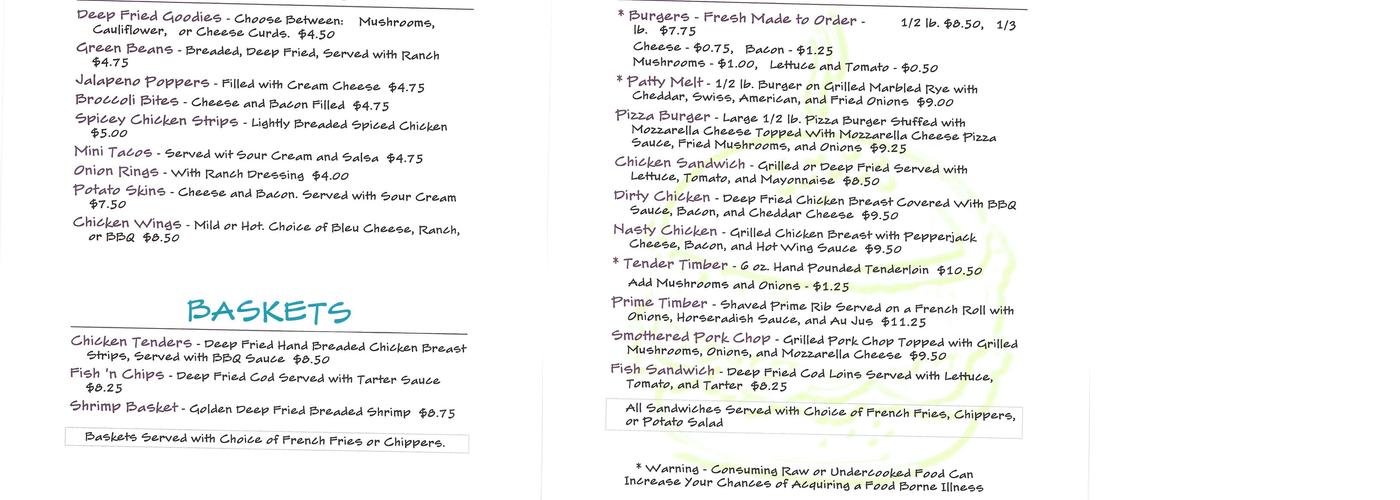 Deep Fried Goodies - Choose Between: Mushrooms,
Cauliflower, or Cheese Curds. $4.50
Green Beans - Breaded, Deep Fried, Served with Ranch
$4.75
Jalapeno Poppers - Filled with Cream Cheese $4.75
Broccoli Bites - Cheese and Bacon Filled $4.75
Spicey Chicken Strips - Lightly Breaded Spiced Chicken
$5.00
Mini Tacos - Served wit Sour Cream and Salsa $4.75
Onion Rings - With Ranch Dressing $4.00
Potato Skins - Cheese and Bacon. Served with Sour Cream
$7.50
Chicken Wings - Mild or Hot. Choice of Bleu Cheese, Ranch,
or BBQ $8.50
BASKETS
Chicken Tenders - Deep Fried Hand Breaded Chicken Breast
Strips, Served with BBQ Sauce $8.50
Fish 'n Chips - Deep Fried Cod Served with Tarter Sauce
$8.25
Shrimp Basket - Golden Deep Fried Breaded Shrimp $8.75
Baskets Served with Choice of French Fries or Chippers.
* Burgers - Fresh Made to Order - 1/2 lb. $8.50, 1/3
lb. $7.75
Cheese - $0.75, Bacon - $1.25
Mushrooms - $1.00, Lettuce and Tomato - $0.50
* Patty Melt - 1/2 lb. Burger on Grilled Marbled Rye with
Cheddar, Swiss, American, and Fried Onions $9.00
Pizza Burger - Large 1/2 lb. Pizza Burger Stuffed with
Mozzarella Cheese Topped With Mozzarella Cheese Pizza
Sauce, Fried Mushrooms, and Onions $9.25
Chicken Sandwich - Grilled or Deep Fried Served with
Lettuce, Tomato, and Mayonnaise $8.50
Dirty Chicken - Deep Fried Chicken Breast Covered With BBQ
Sauce, Bacon, and Cheddar Cheese $9.50
Nasty Chicken - Grilled Chicken Breast with Pepperjack
Cheese, Bacon, and Hot Wing Sauce $9.50
* Tender Timber - 6 oz. Hand Pounded Tenderloin $10.50
Add Mushrooms and Onions - $1.25
Prime Timber - Shaved Prime Rib Served on a French Roll with
Onions, Horseradish Sauce, and Au Jus $11.25
Smothered Pork Chop - Grilled Pork Chop Topped with Grilled
Mushrooms, Onions, and Mozzarella Cheese $9.50
Fish Sandwich - Deep Fried Cod Loins Served with Lettuce,
Tomato, and Tarter $8.25
All Sandwiches Served with Choice of French Fries, Chippers,
or Potato Salad
* Warning - Consuming Raw or Undercooked Food Can
Increase Your Chances of Acquiring a Food Borne Illness